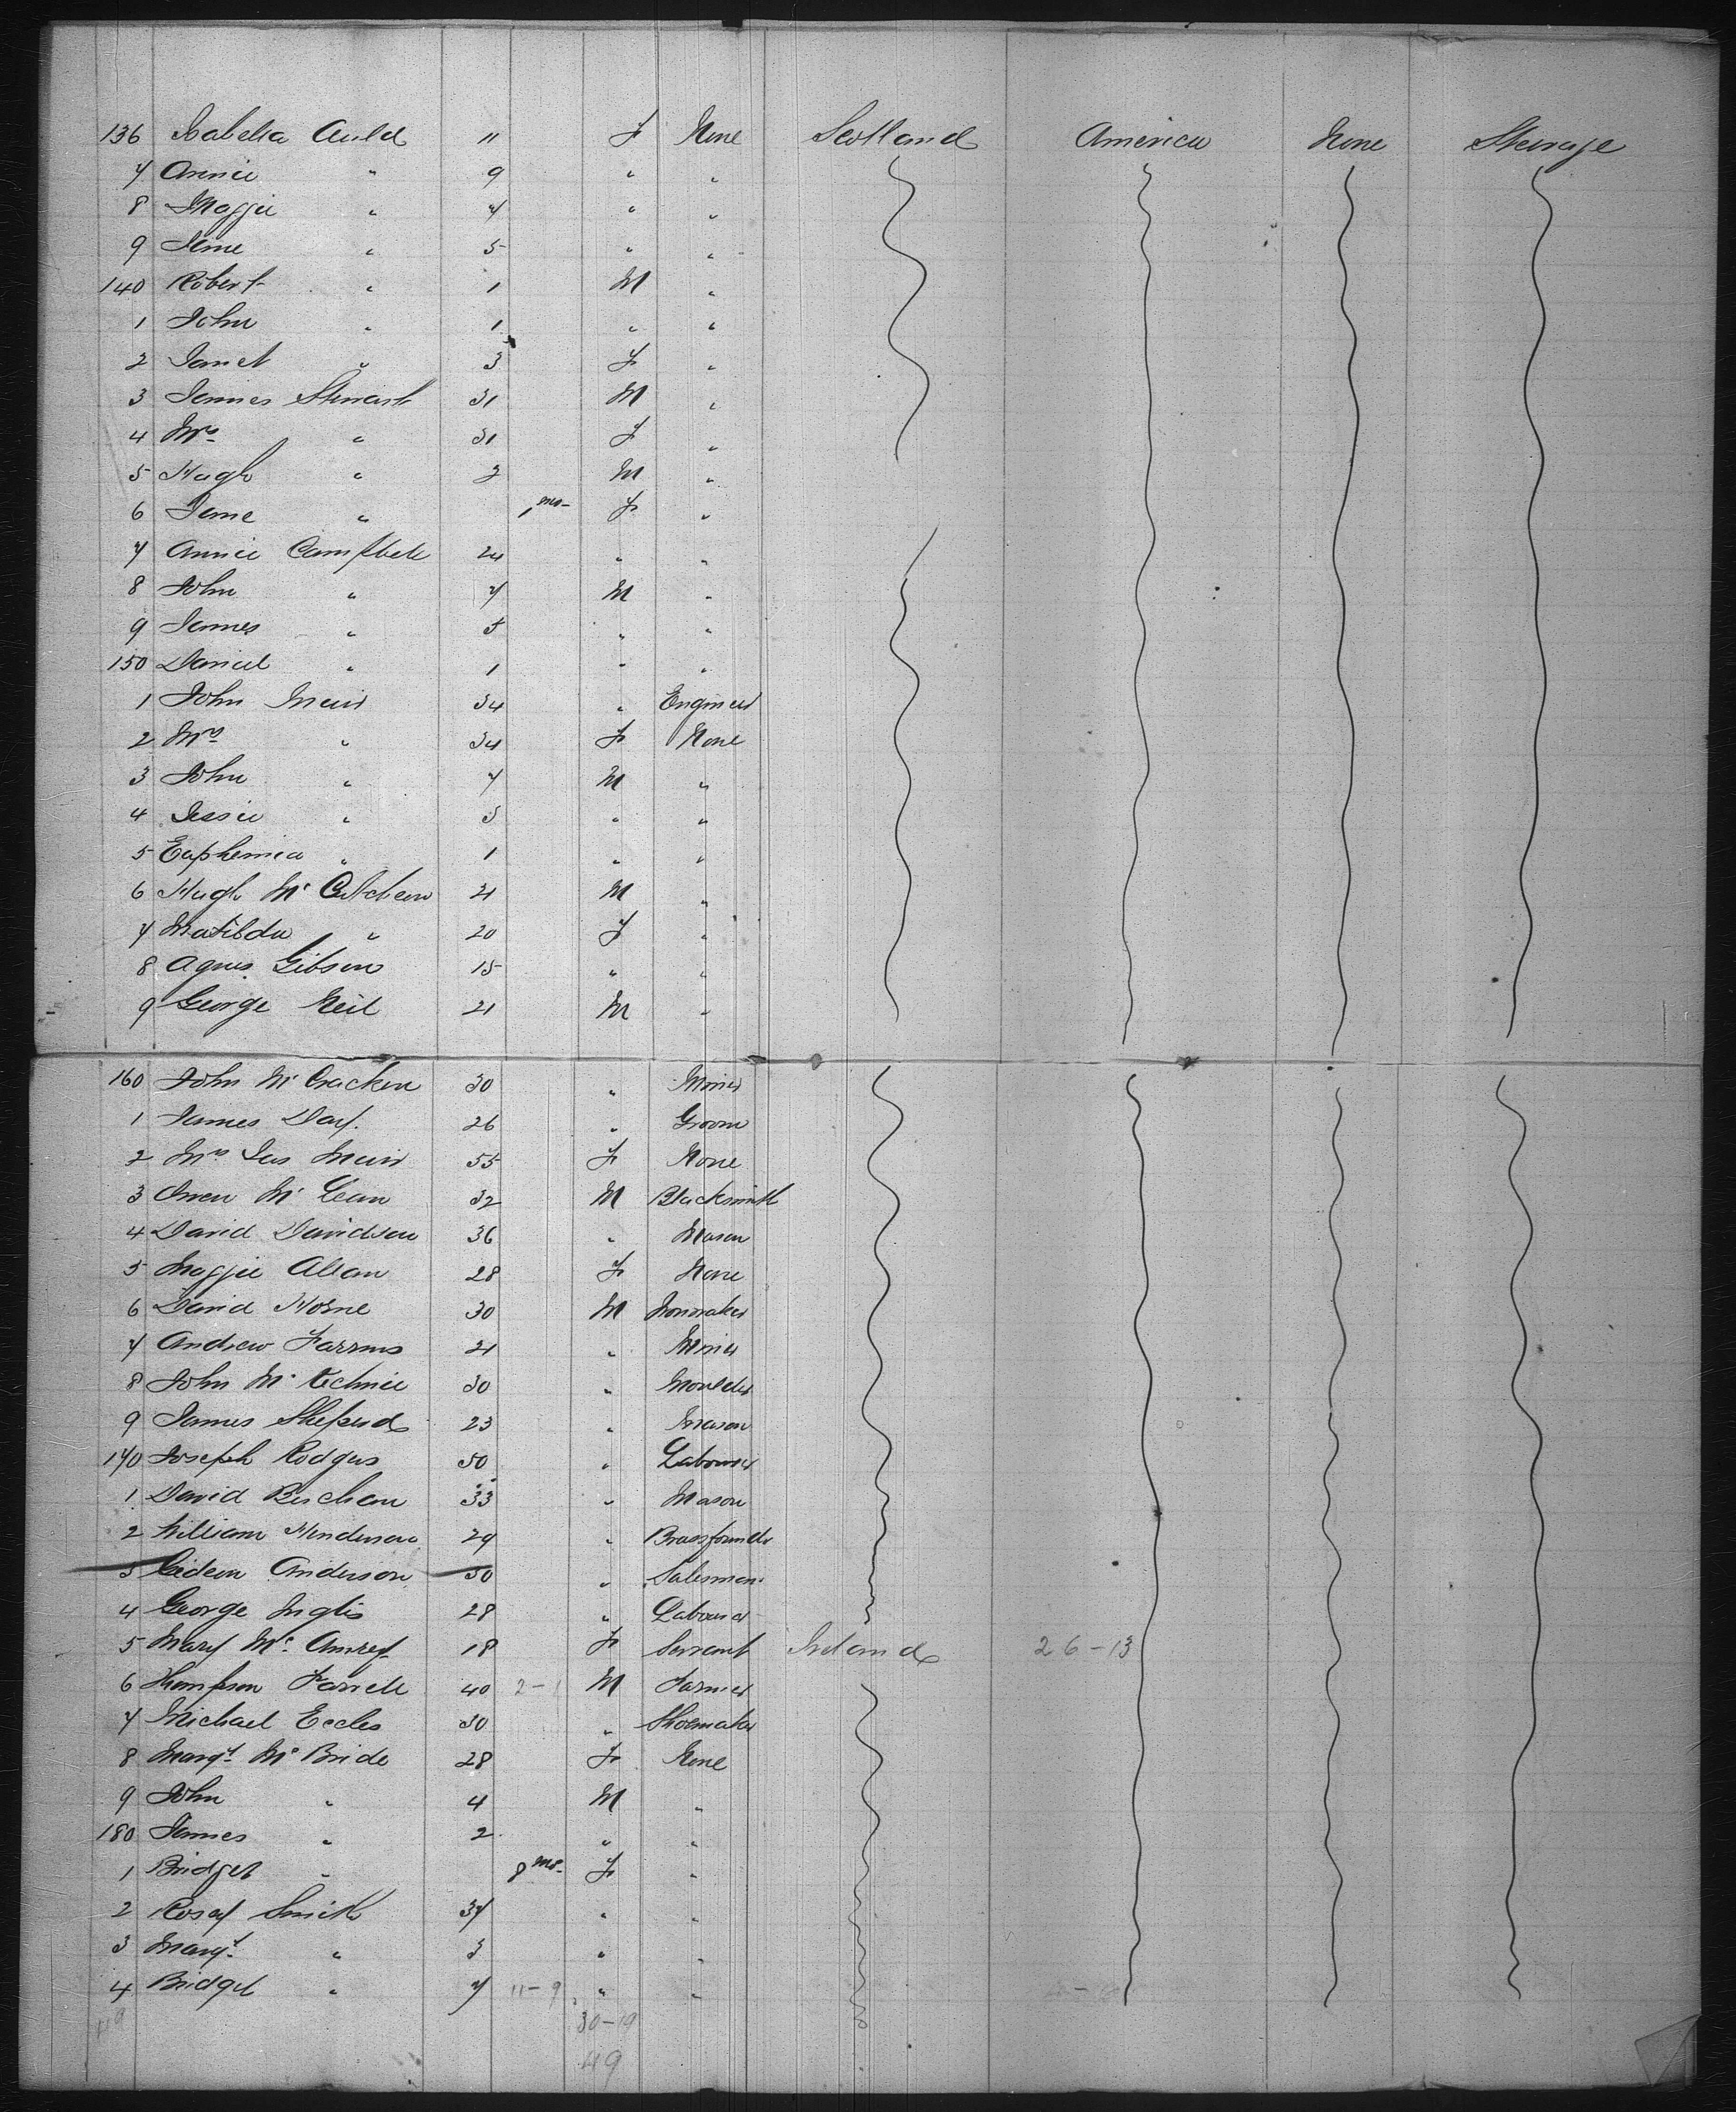 136 Isabella Auld 11 F None Scotland America None Steerage
7 Annie " 9 " "
8 Maggie " 7 " "
9 Jane " 5 " "
140 Robert " 1 M "
1 John " 1 " "
2 Janet " 3 F "
3 James Stewart 31 M "
4 Mrs " 31 F "
5 Hugh " 2 M "
6 Jane " 1 mo- F "
7 Annie Campbell 24 " "
8 John " 7 M "
9 James " 5 " "
150 Daniel " 1 " "
1 John Muir 34 " Engineer
2 Mrs " 34 F None
3 John " 7 M "
4 Jessie " 3 " "
5 Euphemia " 1 " "
6 Hugh Mc Cutcheon 21 M "
7 Matilda " 20 F "
8 Agnes Gibson 15 " "
9 George Neil 21 M "
160 John Mc Cracken 30 " Miner
1 James Day 26 " Groom
2 Mrs Jas Muir 55 F None
3 Owen Mc Lean 32 M Blacksmith
4 David Davidson 36 " Mason
5 Maggie Allan 28 F None
6 David Horne 30 M Ironmaker
7 Andrew 21 " Miner
8 John Mc Kechnie 30 " Moulder
9 James Sheperd 23 " Mason
170 Joseph Rodgers 50 " Labourer
1 David Buchan 33 " Mason
2 William Henderson 29 " Brassfounder
3 Gideon Anderson 30 " Salesman
4 George Inglis 28 " Labourer
5 Mary Mc 18 F Servant Ireland 26-13
6 Thompson Farrell 40 2-1 M Farmer
7 Michael Eccles 30 " Shoemaker
8 Margt Mc Bride 28 F None
9 John " 4 M "
180 James " 2 " "
1 Bridget " 8 mo- F "
2 Rosy Smith 37 " "
3 Margt " 3 " "
4 Bridget " 7 11-9 " "
119 30-19
49